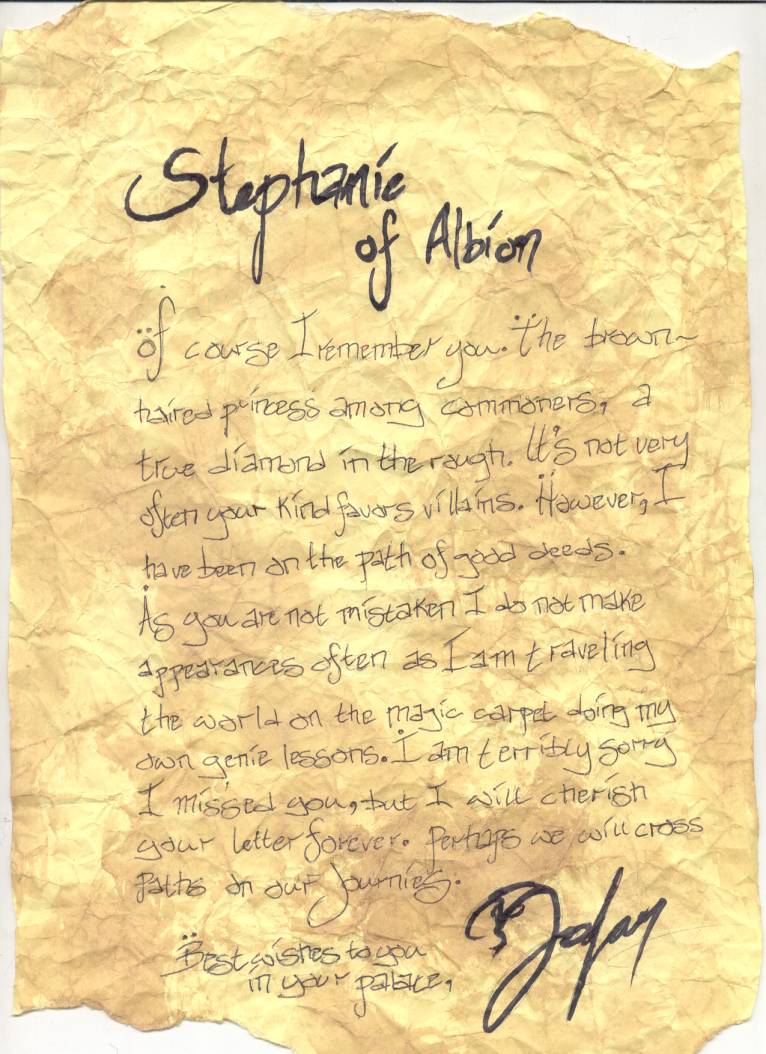 Stephanie
of Albion
Of course I remember you. The brown~
haired princess among commoners, a
true diamond in the rough. It's not very
often your kind favors villains. However, I
have been on the path of good deeds.
As you are not mistaken I do not make
appearances often as I am traveling
the world on the magic carpet doing my
own genie lessons. I am terribly sorry
I missed you, but I will cherish
your letter forever. Perhaps we will cross
paths on our journies.
Best wishes to you
in your palace,
Jafar